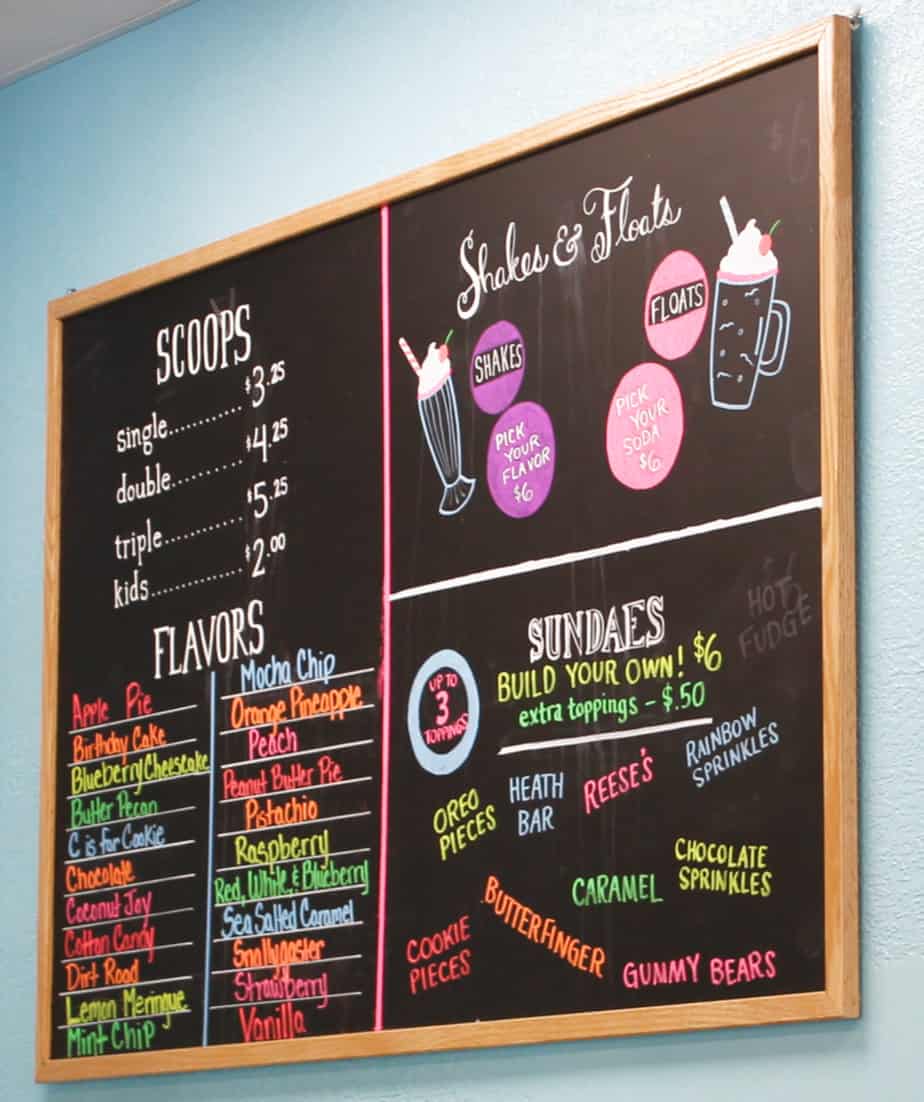 SCOOPS
single........... $3.25
double.......... $4.25
triple............ $5.25
kids.............. $2.00
FLAVORS
Apple Pie
Birthday Cake
Blueberry Cheesecake
Butter Pecan
C is for Cookie
Chocolate
Coconut Joy
Cotton Candy
Dirt Road
Lemon Meringue
Mint Chip
Mocha Chip
Orange Pineapple
Peach
Peanut Butter Pie
Pistachio
Raspberry
Red, White, & Blueberry
Sea Salted Caramel
Snallygaster
Strawberry
Vanilla
$6
Shakes & Floats
SHAKES
PICK
YOUR
FLAVOR
$6
FLOATS
PICK
YOUR
SODA
$6
HOT
FUDGE
SUNDAES
BUILD YOUR OWN! $6
extra toppings - $.50
UP TO
3
TOPPINGS
OREO
PIECES
HEATH
BAR
REESE'S
RAINBOW
SPRINKLES
COOKIE
PIECES
BUTTERFINGER
CARAMEL
CHOCOLATE
SPRINKLES
GUMMY BEARS